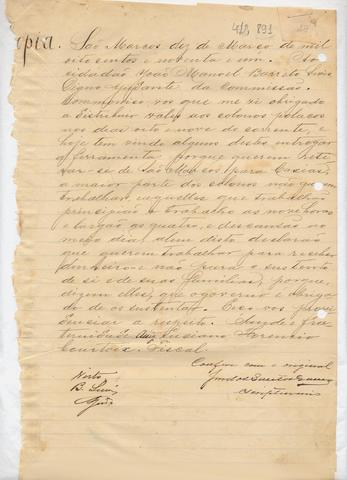 418, 891
Copia. São Marcos dez de Março de mil
oito centos e noventa e um. Ao
cidadão João Manoel Barreto
Ajudante da Commissão.
Communico vos que me vi obrigado
a distribuir vales aos colonos polacos
nos dias oito e nove do corrente, e
hoje tem vindo alguns destes entregar
a ferramenta, porque querem reti
rar-se de São Marcos para Caxias,
a maior parte dos colonos não querem
trabalhar, e aquelles que trabalhão
principião o trabalho as nove horas
e largão as quatro, e descansão ao
meio dia, alem disto declarão
que querem trabalhar para receber
dinheiro e não para o sustento
de si e de suas familias, porque,
dizem elles, que o governo é obriga
do de os sustentar. Eis o que vos posso
a respeito. Saude e fra
ternidade Luciano
Fiscal.
Confere com o original
Visto
B.